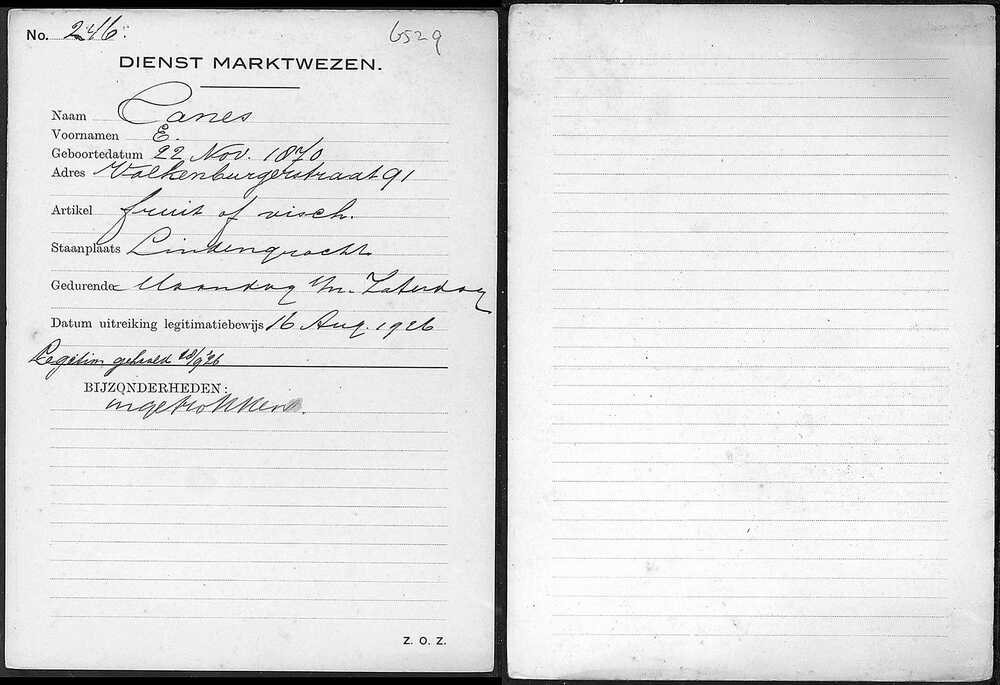 No. 246.
6529
DIENST MARKTWEZEN.
Naam Canes
Voornamen E.
Geboortedatum 22 Nov. 1870
Adres Valkenburgerstraat 91
Artikel fruit of visch.
Staanplaats Lindengracht
Gedurende Maandag t/m. Zaterdag
Datum uitreiking legitimatiebewijs 16 Aug. 1926
Legitim gehaald 28/9 '26
BIJZONDERHEDEN:
ingetrokken.
Z. O. Z.